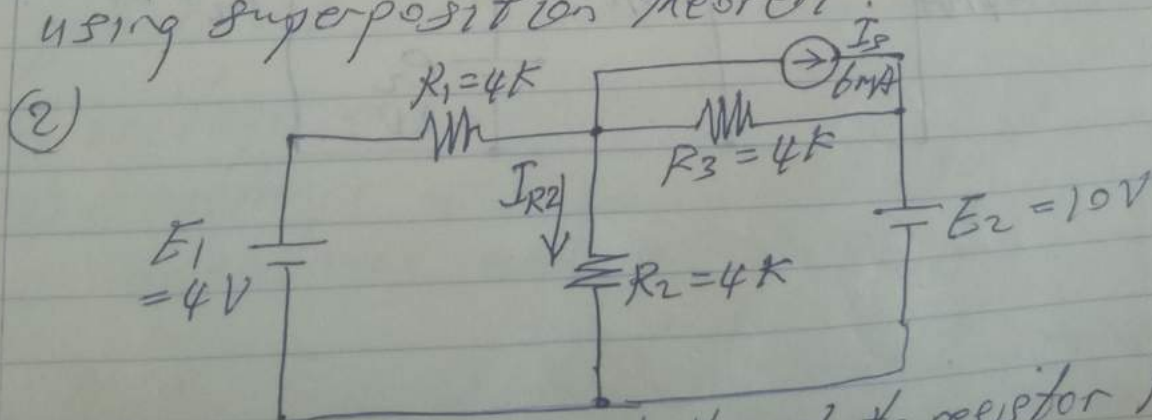 using superposition
②
R₁=4K
Is
6mA
R3=4K
IR2
E1
=4V
R2=4K
E2=10V
resistor